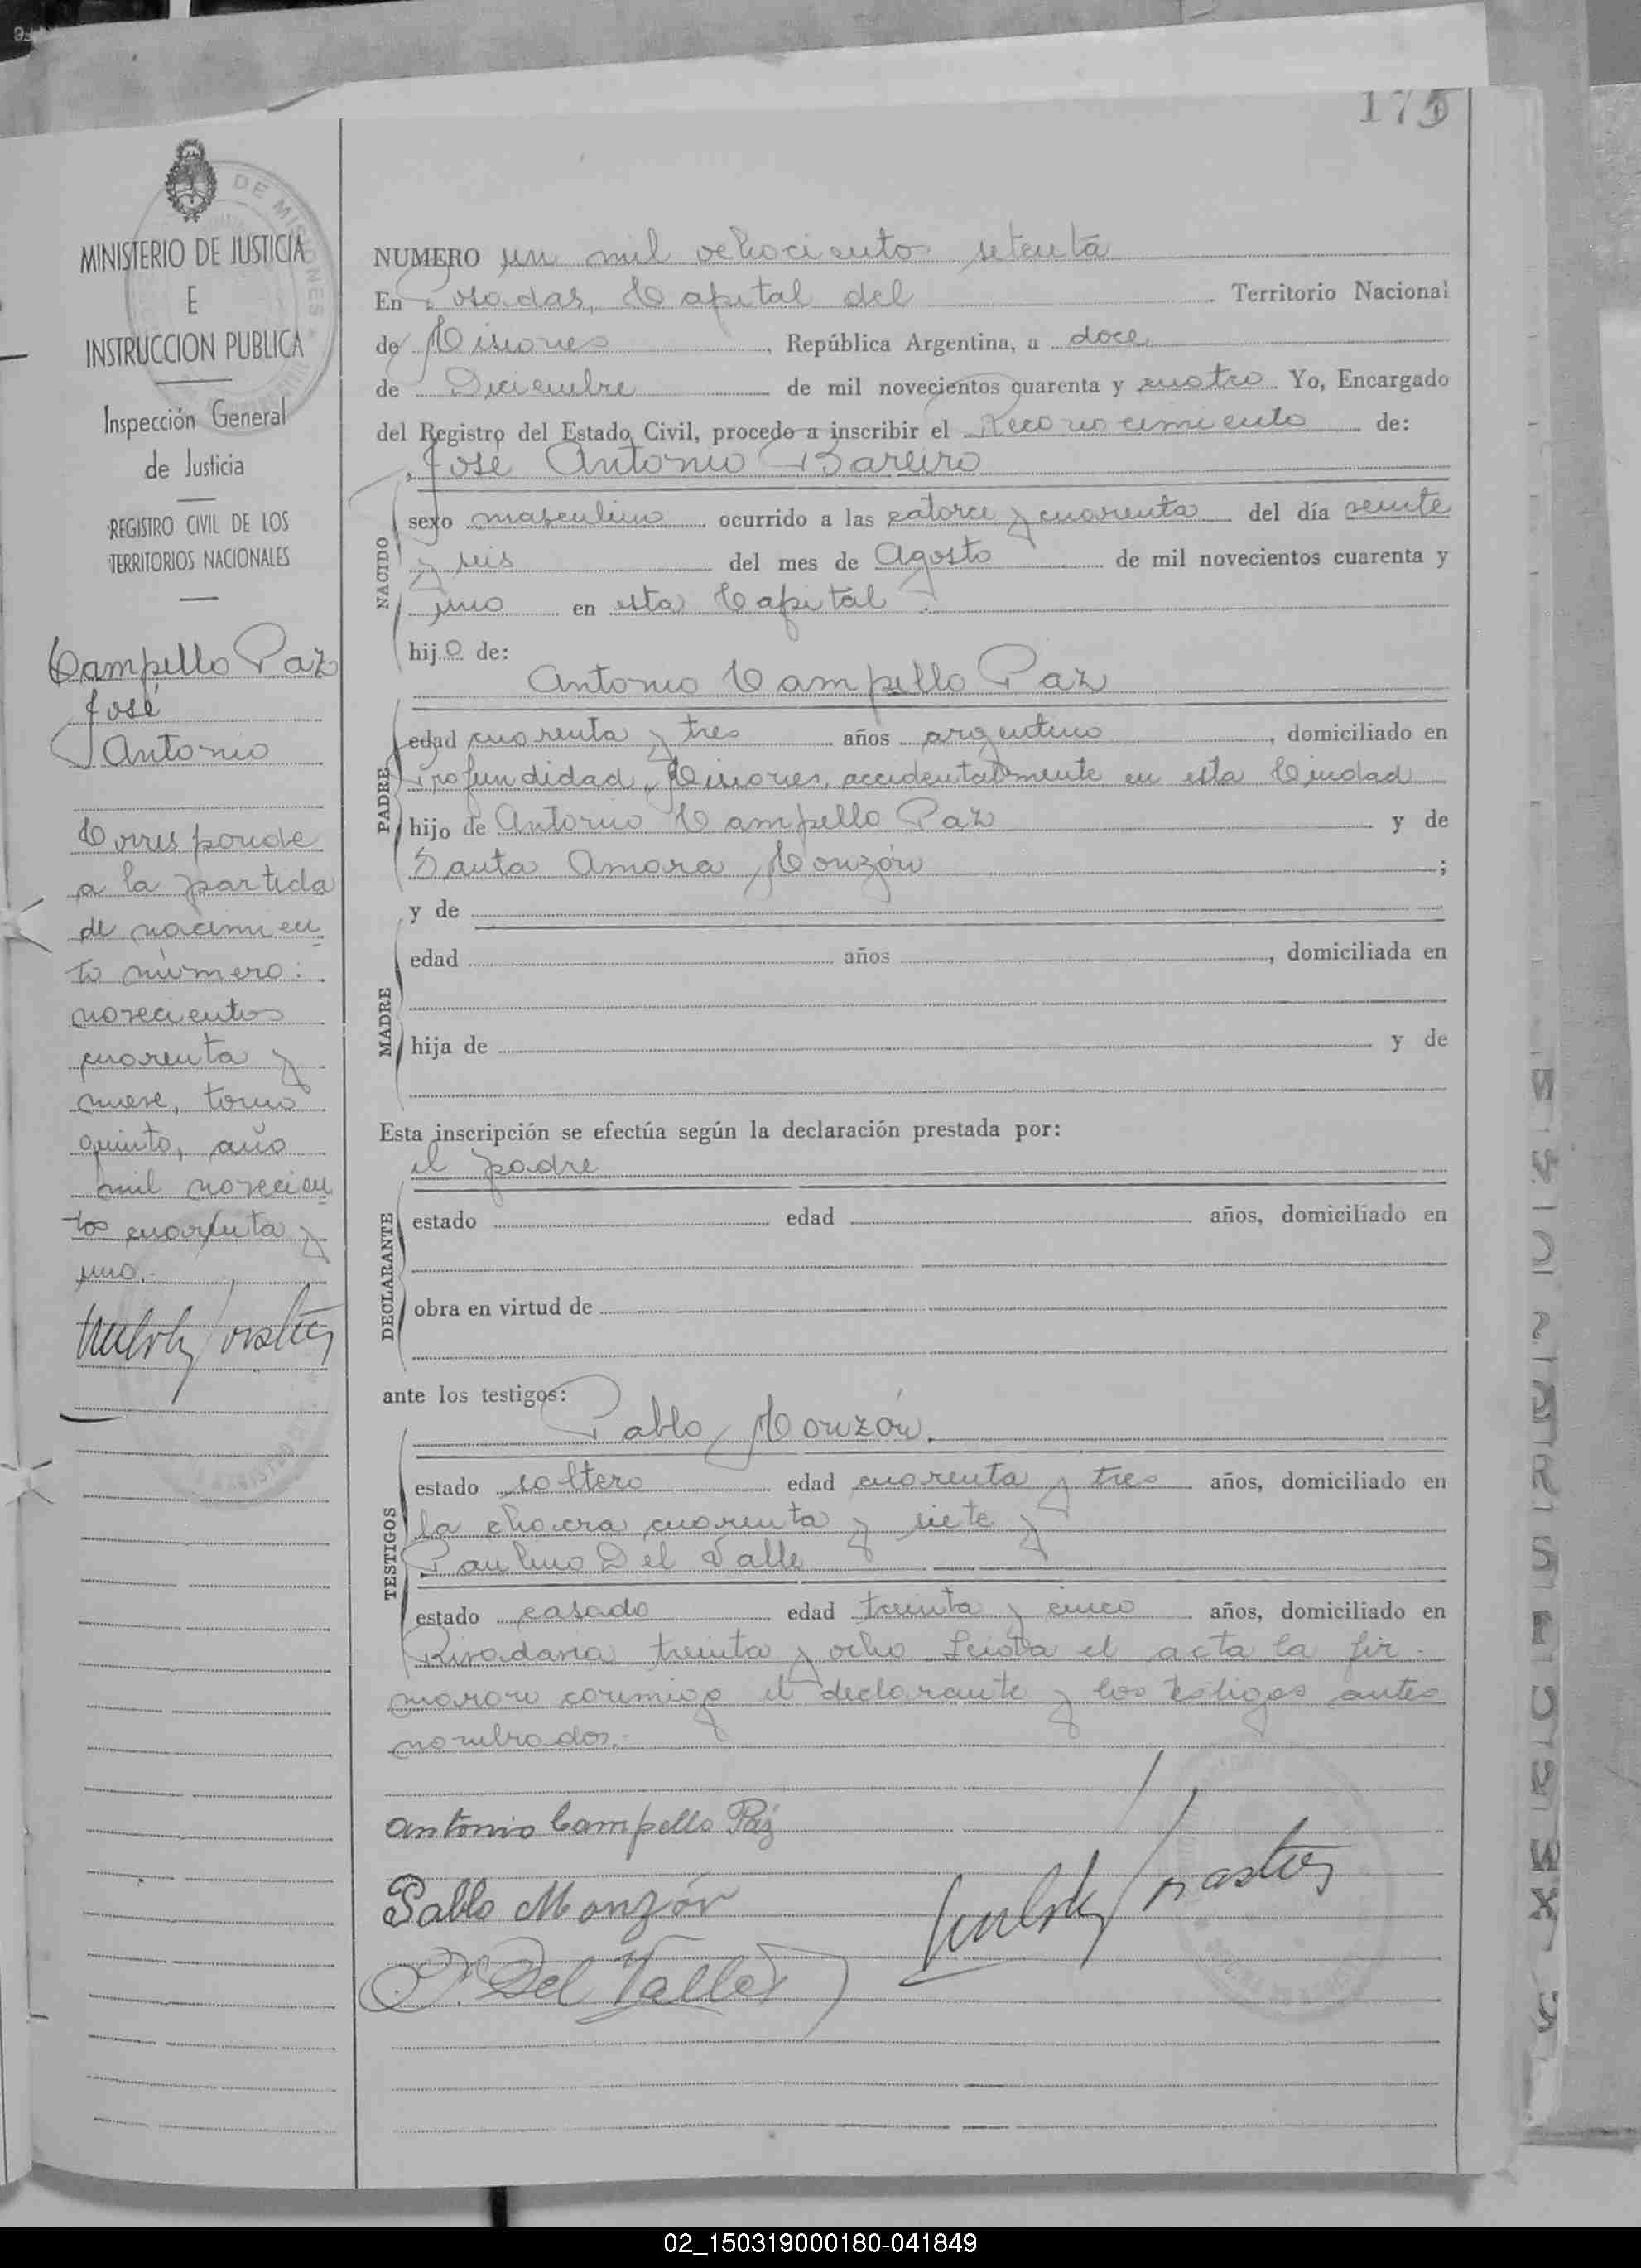 175
MINISTERIO DE JUSTICIA
E
INSTRUCCION PUBLICA
Inspección General
de Justicia
REGISTRO CIVIL DE LOS
TERRITORIOS NACIONALES
Campello Paz
José
Antonio
Corresponde
a la partida
de nacimien
to número:
novecientos
cuarenta y
nueve, tomo
quinto, año
mil novecien
tos cuarenta y
uno.-
NUMERO un mil ochocientos setenta
En Posadas, Capital del Territorio Nacional
de Misiones, República Argentina, a doce
de Diciembre de mil novecientos cuarenta y cuatro Yo, Encargado
del Registro del Estado Civil, procedo a inscribir el Reconocimiento de:
José Antonio Bareiro
NACIDO
sexo masculino ocurrido a las catorce y cuarenta del día veinte
y seis del mes de Agosto de mil novecientos cuarenta y
uno en esta Capital.
hijo de:
Antonio Campello Paz
PADRE
edad cuarenta y tres años argentino, domiciliado en
Profundidad, Misiones, accidentalmente en esta Ciudad
hijo de Antonio Campello Paz y de
Santa Amara Monzón;
y de
MADRE
edad años, domiciliada en
hija de y de
Esta inscripción se efectúa según la declaración prestada por:
el padre
DECLARANTE
estado edad años, domiciliado en
obra en virtud de
ante los testigos:
Pablo Monzón.
TESTIGOS
estado soltero edad cuarenta y tres años, domiciliado en
la chacra cuarenta y siete y
Paulino Del Valle
estado casado edad treinta y cinco años, domiciliado en
Rivadavia treinta y ocho Leida el acta la fir-
maron conmigo el declarante y los testigos antes
nombrados.-
Antonio Campello Páz
Pablo Monzón
P. Del Valle
02_150319000180-041849